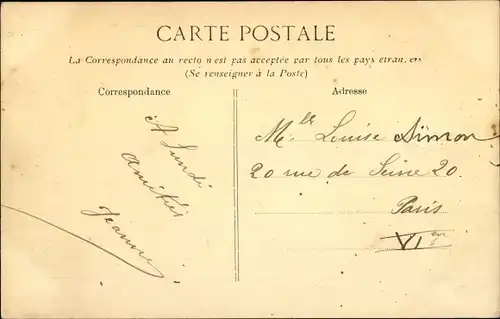 CARTE POSTALE
La Correspondance au recto n'est pas acceptée par tous les pays étran. ers
(Se renseigner à la Poste)
Correspondance
A Lundi
amitiés
Jeanne
Adresse
Mlle Louise Simon
20 rue de Seine 20.
Paris
VIem